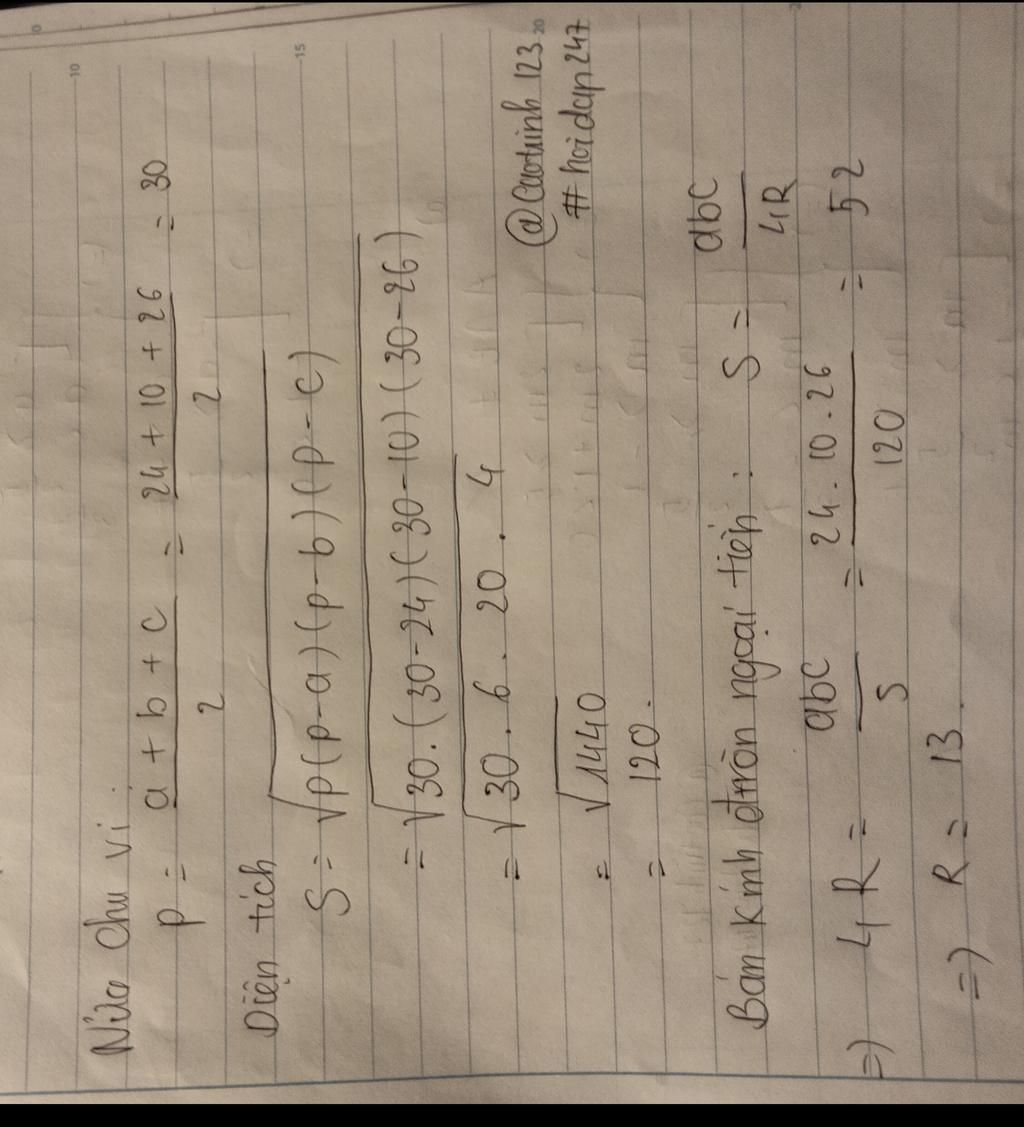 Nửa chu vi.
p = a + b + c / 2 = 24 + 10 + 26 / 2 = 30
Diện tích
S = √p(p-a)(p-b)(p-c)
= √30.(30-24)(30-10)(30-26)
= √30.6.20.4
= √1440
= 120.
@Caotrinh 123
# hoidap247
Bán kính đtròn ngoại tiếp : S = abc / 4R
=) 4R = abc / S = 24.10.26 / 120 = 52
=) R = 13.
10
15
20